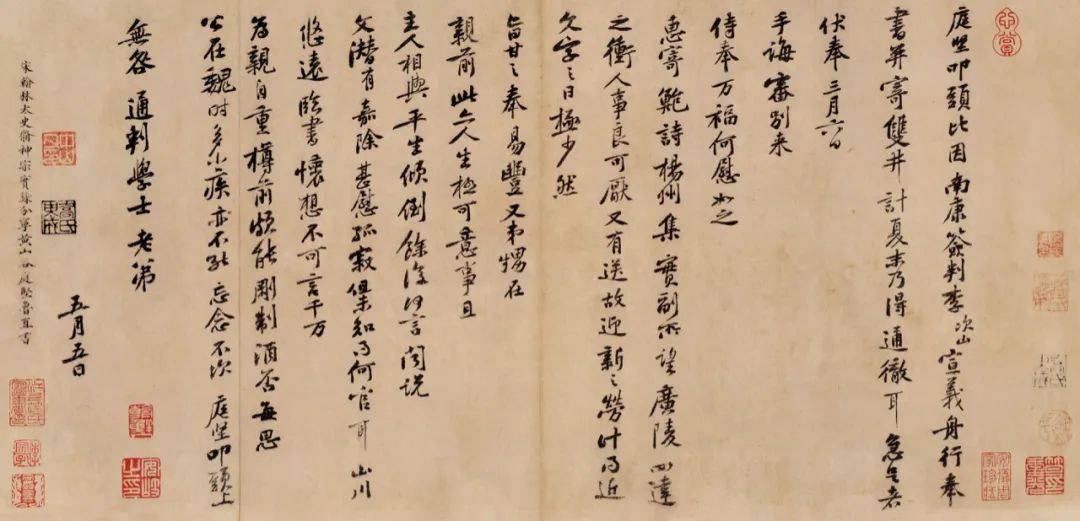 庭坚叩頭比因南康簽判李次山宣義舟行奉
書并寄雙井計夏末乃得通徹耳急足者
伏奉三月六日
手誨審別来
侍奉万福何慰如之
惠寄鮑詩楊州集實副所望廣陵四達
之衝人事良可厭又有送故迎新之勞計得近
文字之日極少然
旨甘之奉易豐又弟甥在
親前此亦人生極可意事且
主人相與平生傾倒餘復何言聞說
文潜有嘉除甚慰孤寂知得何官耳山川
悠遠臨書懷想不可言千万
為親自重樽前頗能剛制酒否每思
公在魏时多小疾亦不能忘念不次 庭坚叩頭上
無咎通判學士老弟
五月五日
宋翰林太史脩神宗實錄分寧黃山谷庭堅魯直書